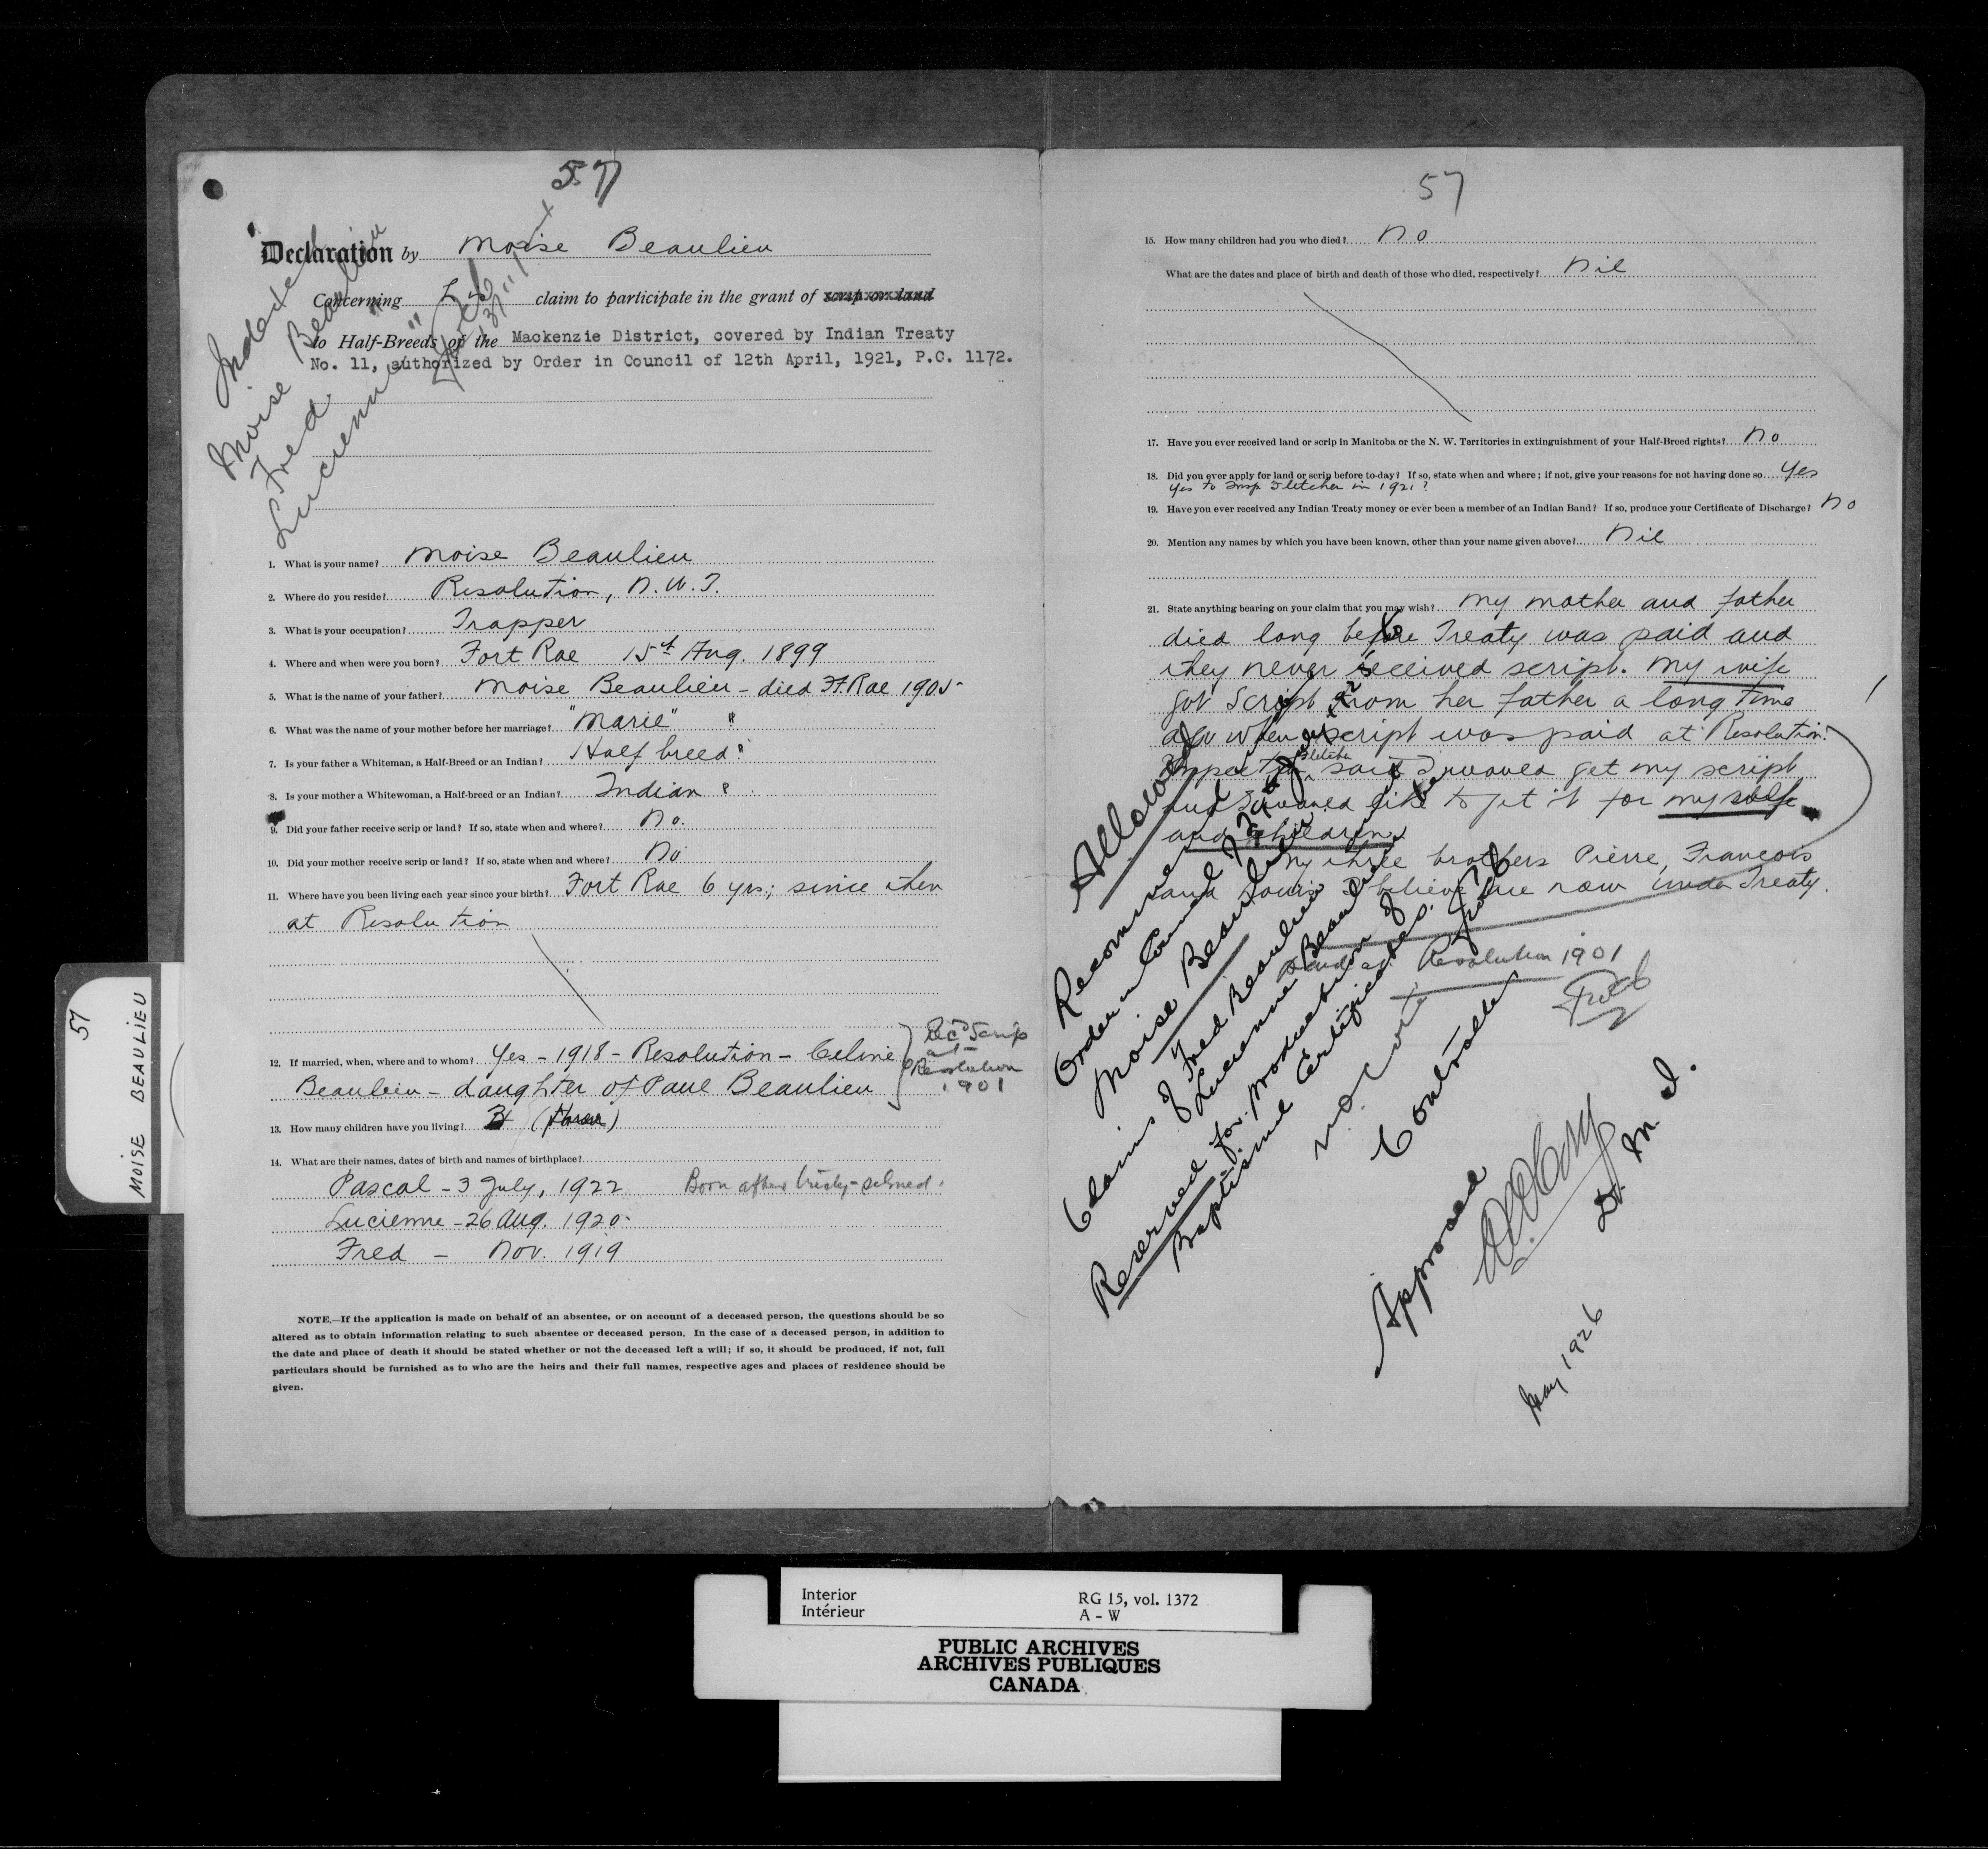 57
Declaration by Moise Beaulieu
Concerning his claim to participate in the grant of scrip or land
to Half-Breeds of the Mackenzie District, covered by Indian Treaty
No. 11, authorized by Order in Council of 12th April, 1921, P.C. 1172.
Indexed
Moise Beaulieu
Fred "
Lucienne "
1. What is your name? Moise Beaulieu
2. Where do you reside? Resolution, N.W.T.
3. What is your occupation? Trapper
4. Where and when were you born? Fort Rae 15th Aug. 1899
5. What is the name of your father? Moise Beaulieu - died Ft. Rae 1905
6. What was the name of your mother before her marriage? "Marie" "
7. Is your father a Whiteman, a Half-Breed or an Indian? Half breed
8. Is your mother a Whitewoman, a Half-breed or an Indian? Indian
9. Did your father receive scrip or land? If so, state when and where? No.
10. Did your mother receive scrip or land? If so, state when and where? No
11. Where have you been living each year since your birth? Fort Rae 6 yrs; since then
at Resolution
12. If married, when, where and to whom? Yes - 1918 - Resolution - Celine
Beaulieu - daughter of Paul Beaulieu
Rec'd Scrip
at
Resolution
1901
13. How many children have you living? 3 (three)
14. What are their names, dates of birth and names of birthplace?
Pascal - 3 July, 1922 Born after treaty signed.
Lucienne - 26 Aug. 1920
Fred - Nov. 1919
NOTE.—If the application is made on behalf of an absentee, or on account of a deceased person, the questions should be so
altered as to obtain information relating to such absentee or deceased person. In the case of a deceased person, in addition to
the date and place of death it should be stated whether or not the deceased left a will; if so, it should be produced, if not, full
particulars should be furnished as to who are the heirs and their full names, respective ages and places of residence should be
given.
57
MOISE BEAULIEU
57
15. How many children had you who died? No
What are the dates and place of birth and death of those who died, respectively? Nil
17. Have you ever received land or scrip in Manitoba or the N. W. Territories in extinguishment of your Half-Breed rights? No
18. Did you ever apply for land or scrip before to-day? If so, state when and where; if not, give your reasons for not having done so Yes
Yes to Insp. Fletcher in 1921?
19. Have you ever received any Indian Treaty money or ever been a member of an Indian Band? If so, produce your Certificate of Discharge? No
20. Mention any names by which you have been known, other than your name given above? Nil
21. State anything bearing on your claim that you may wish? My mother and father
died long before Treaty was paid and
they never received script. My wife
got script from her father a long time
ago when script was paid at Resolution.
Inspector Fletcher said I would get my script
and I would like to get it for myself
and children
My three brothers Pierre, Francois
and Louis I believe are now under Treaty.
Resolution 1901
Allowed
Recommended
Order in Council
Moise Beaulieu
Claims of Fred Beaulieu
Lucienne Beaulieu
Reserved for production of
Baptismal Certificates.
Controller
Approved
D. M. I.
May 1926
Interior
Intérieur
RG 15, vol. 1372
A - W
PUBLIC ARCHIVES
ARCHIVES PUBLIQUES
CANADA